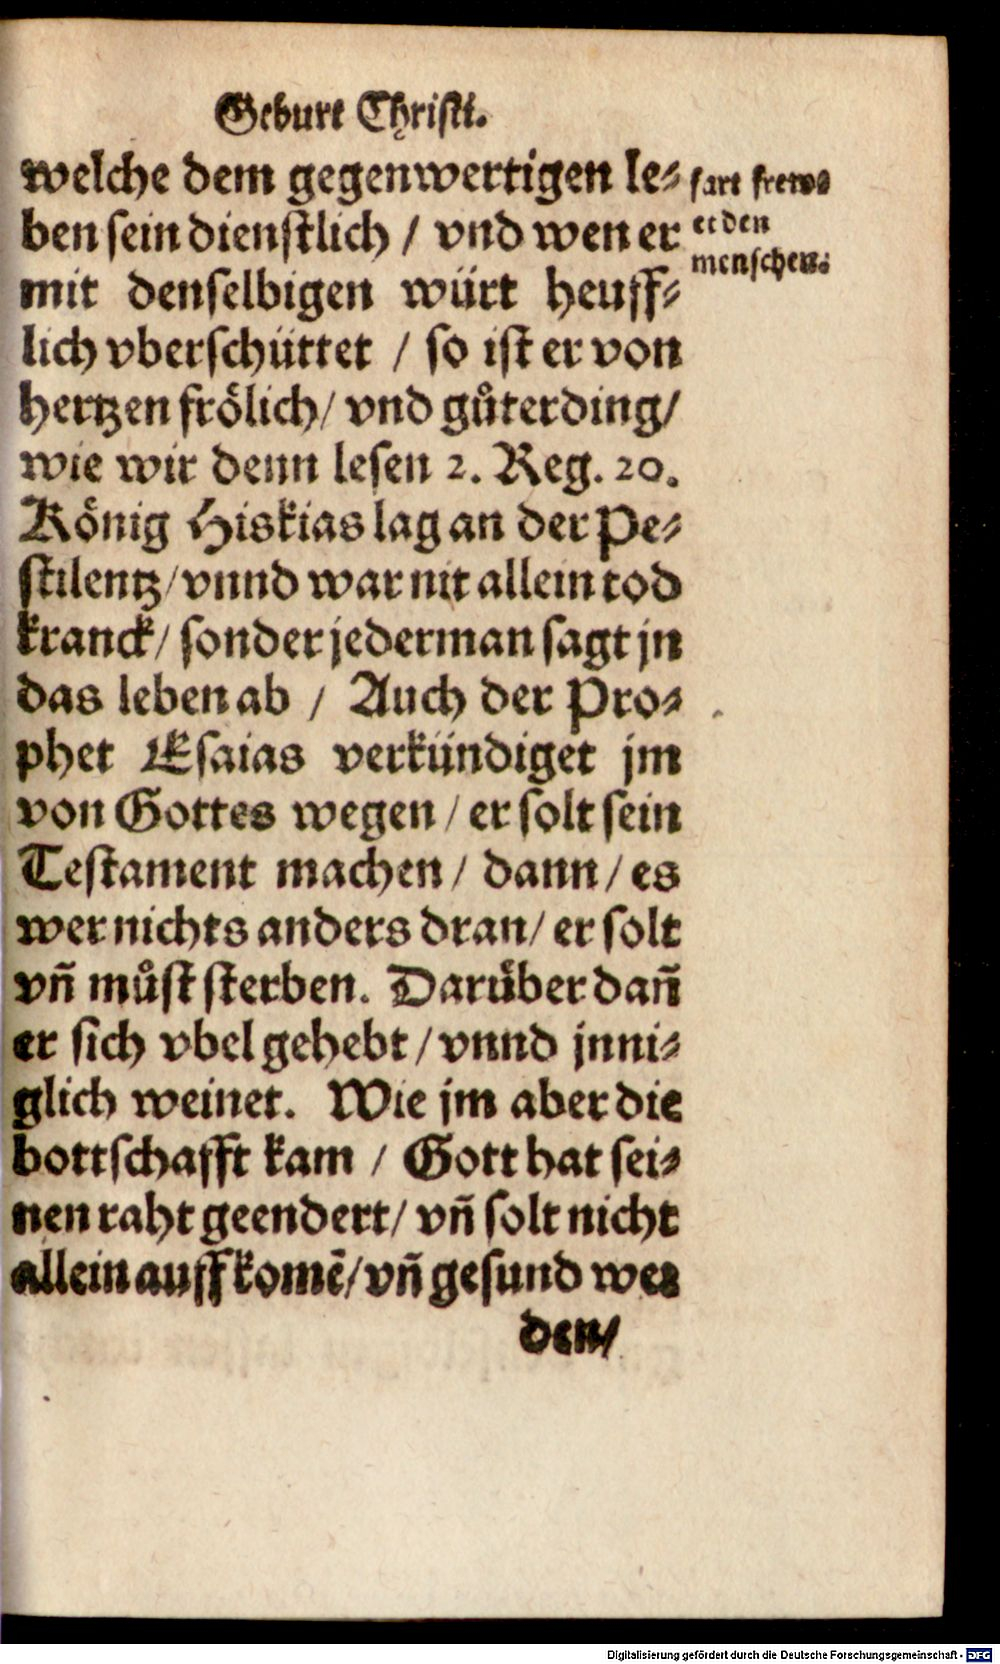 Geburt Christi.
welche dem gegenwertigen le-
ben sein dienstlich / vnd wen er
mit denselbigen würt heuff-
lich vberschüttet / so ist er von
hertzen frölich / vnd gůter ding /
wie wir denn lesen 2. Reg. 20.
König Hiskias lag an der Pe-
stilentz / vnnd war nit allein tod
kranck / sonder jederman sagt jn
das leben ab / Auch der Pro-
phet Esaias verkündiget jm
von Gottes wegen / er solt sein
Testament machen / dann / es
wer nichts anders dran / er solt
vñ můst sterben. Darüber dañ
er sich vbel gehebt / vnnd jnni-
glich weinet. Wie jm aber die
bottschafft kam / Gott hat sei-
nen raht geendert / vñ solt nicht
allein auff komē / vñ gesund wer
den /
fart frew-
et den
menschen.
Digitalisierung gefördert durch die Deutsche Forschungsgemeinschaft - DFG